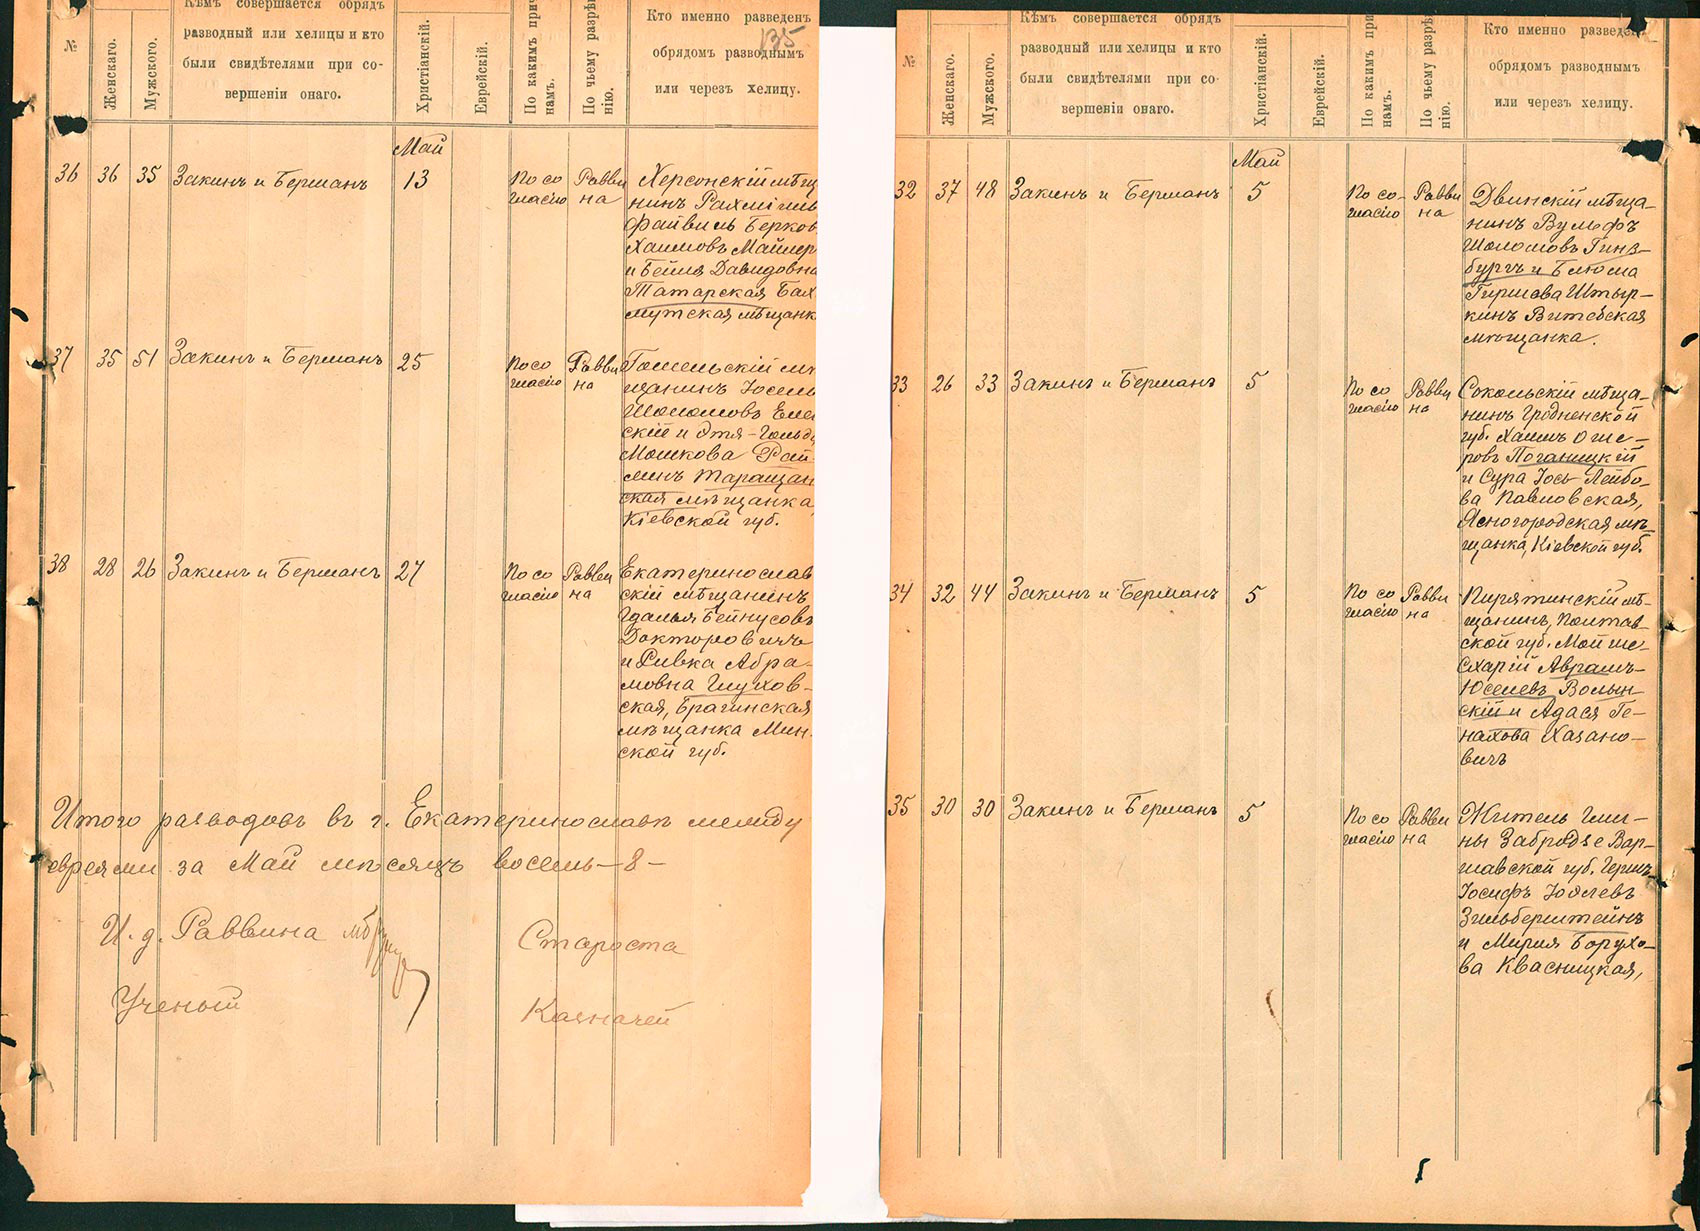 №
Женскаго.
Мужского.
Кѣмъ совершается обрядъ
разводный или хелицы и кто
были свидѣтелями при со-
вершеніи онаго.
Христіанскій.
Еврейскій.
По какимъ при
намъ.
По чьему разрѣ
нію.
Кто именно разведенъ
обрядомъ разводнымъ
или черезъ хелицу.
135
Май
36 36 35 Закинъ и Берманъ 13
По со
гласію
Равви
на
Херсонскій мѣщ
нинъ Рахміель
Файвиль Берков
Хаимовъ Майлер
и Бейля Давидовна
Татарская Бах
мутская мѣщанк
37 35 51 Закинъ и Берманъ 25
По со
гласію
Равви
на
Гомельскій мѣ
щанинъ Іосель
Шоломовъ
скій и Этя-Гольд
Мошкова Рай
Таращан
ская мѣщанка
Кіевской губ.
38 28 26 Закинъ и Берманъ 27
По со
гласію
Равви
на
Екатеринослав
скій мѣщанинъ
Гдалья Бейнусовъ
Докторовичъ
и Ривка Абра-
мовна Глухов-
ская, Брагинская
мѣщанка Мин
ской губ.
Итого разводовъ въ г. Екатеринославѣ между
евреями за Май мѣсяцъ восемь-8-
И. д. Раввина
Староста
Ученый
Казначей
№
Женскаго.
Мужского.
Кѣмъ совершается обрядъ
разводный или хелицы и кто
были свидѣтелями при со
вершеніи онаго.
Христіанскій.
Еврейскій.
По какимъ при
намъ.
По чьему разрѣ
нію.
Кто именно разведен
обрядомъ разводнымъ
или черезъ хелицу.
Май
32 37 48 Закинъ и Берманъ 5
По со-
гласію
Равви
на
Двинскій мѣща-
нинъ Вульфъ
Шоломовъ Гинз-
бургъ и Блюма
Гиршева Штыр-
кинъ Витебская
мѣщанка.
33 26 33 Закинъ и Берманъ 5
По со
гласію
Равви
на
Сокольскій мѣща-
нинъ Гродненской
губ. Хаимъ Оше-
ровъ Поганицкій
и Сура Іось Лейбо-
ва Павловская,
Ясногородская мѣ-
щанка, Кіевской губ.
34 32 44 Закинъ и Берманъ 5
По со
гласію
Равви
на
Пирятинскій мѣ-
щанинъ, Полтав-
ской губ. Мойше-
Схарій Аврамъ-
Юселевъ Волын-
скій и Адася Ге-
нахова Хазано-
вичъ
35 30 30 Закинъ и Берманъ 5
По со
гласію
Равви
на
Житель гми-
ны Забродзе Вар-
шавской губ. Гершъ
Іосифъ Іойлевъ
Зильберштейнъ
и Мирия Борухо-
ва Квасницкая,